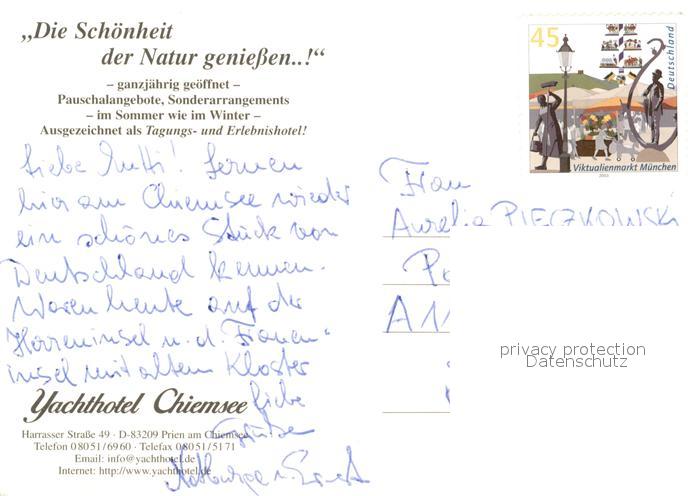 „Die Schönheit
der Natur genießen..!“
– ganzjährig geöffnet –
Pauschalangebote, Sonderarrangements
– im Sommer wie im Winter –
Ausgezeichnet als Tagungs- und Erlebnishotel!
45
Deutschland
Viktualienmarkt München
2003
Liebe Mutti! Lernen
hier am Chiemsee wieder
ein schönes Stück von
Deutschland kennen.
Waren heute auf der
Herreninsel u. d. Frauen-
insel mit altem Kloster
Liebe
Grüße
Notburga u. Ernst
Frau
Aurelia PIECZKOWSKI
A 11
privacy protection
Datenschutz
Yachthotel Chiemsee
Harrasser Straße 49 · D-83209 Prien am Chiemsee
Telefon 08051/6960 · Telefax 08051/5171
Email: info@yachthotel.de
Internet: http://www.yachthotel.de